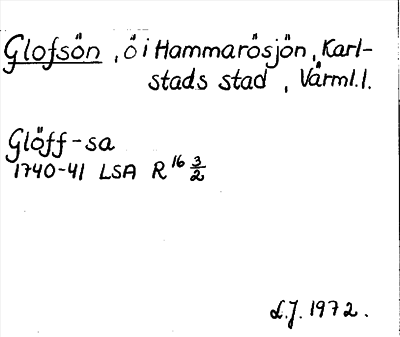 Glofsön, ö i Hammarösjön, Karl-
stads stad, Värml.l.
Glöff-sa
1740-41 LSA R 16 3/2
L.J. 1972.